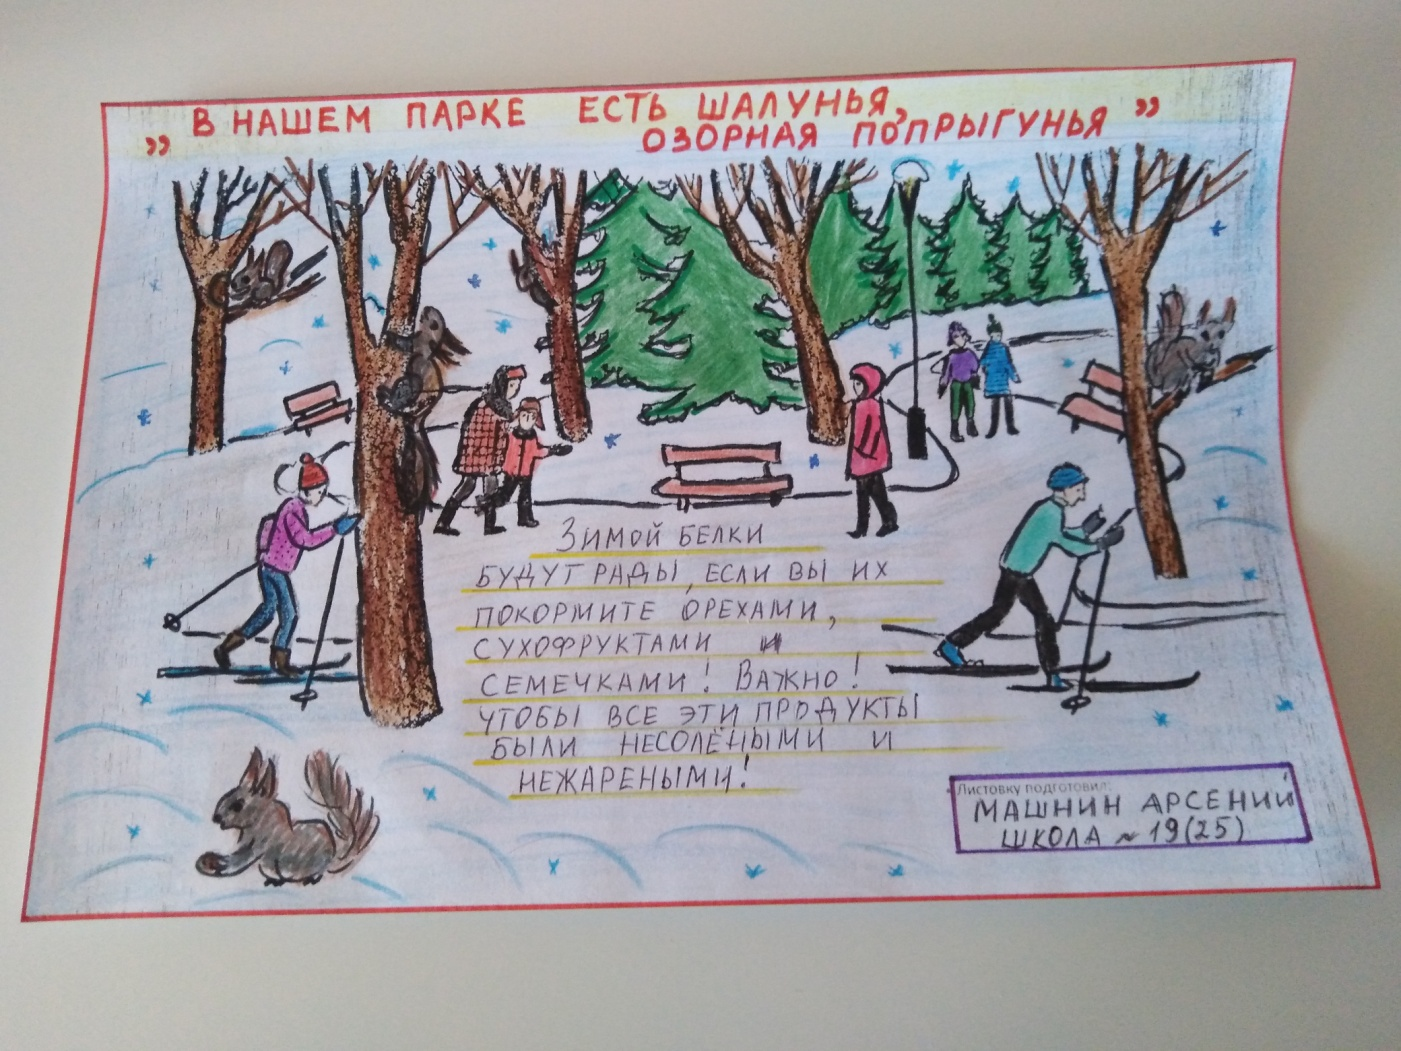 „ В НАШЕМ ПАРКЕ ЕСТЬ ШАЛУНЬЯ,
ОЗОРНАЯ ПОПРЫГУНЬЯ ”
ЗИМОЙ БЕЛКИ
БУДУТ РАДЫ, ЕСЛИ ВЫ ИХ
ПОКОРМИТЕ ОРЕХАМИ,
СУХОФРУКТАМИ И
СЕМЕЧКАМИ! ВАЖНО!
ЧТОБЫ ВСЕ ЭТИ ПРОДУКТЫ
БЫЛИ НЕСОЛЁНЫМИ И
НЕЖАРЕНЫМИ!
Листовку подготовил:
МАШНИН АРСЕНИЙ
ШКОЛА № 19(25)